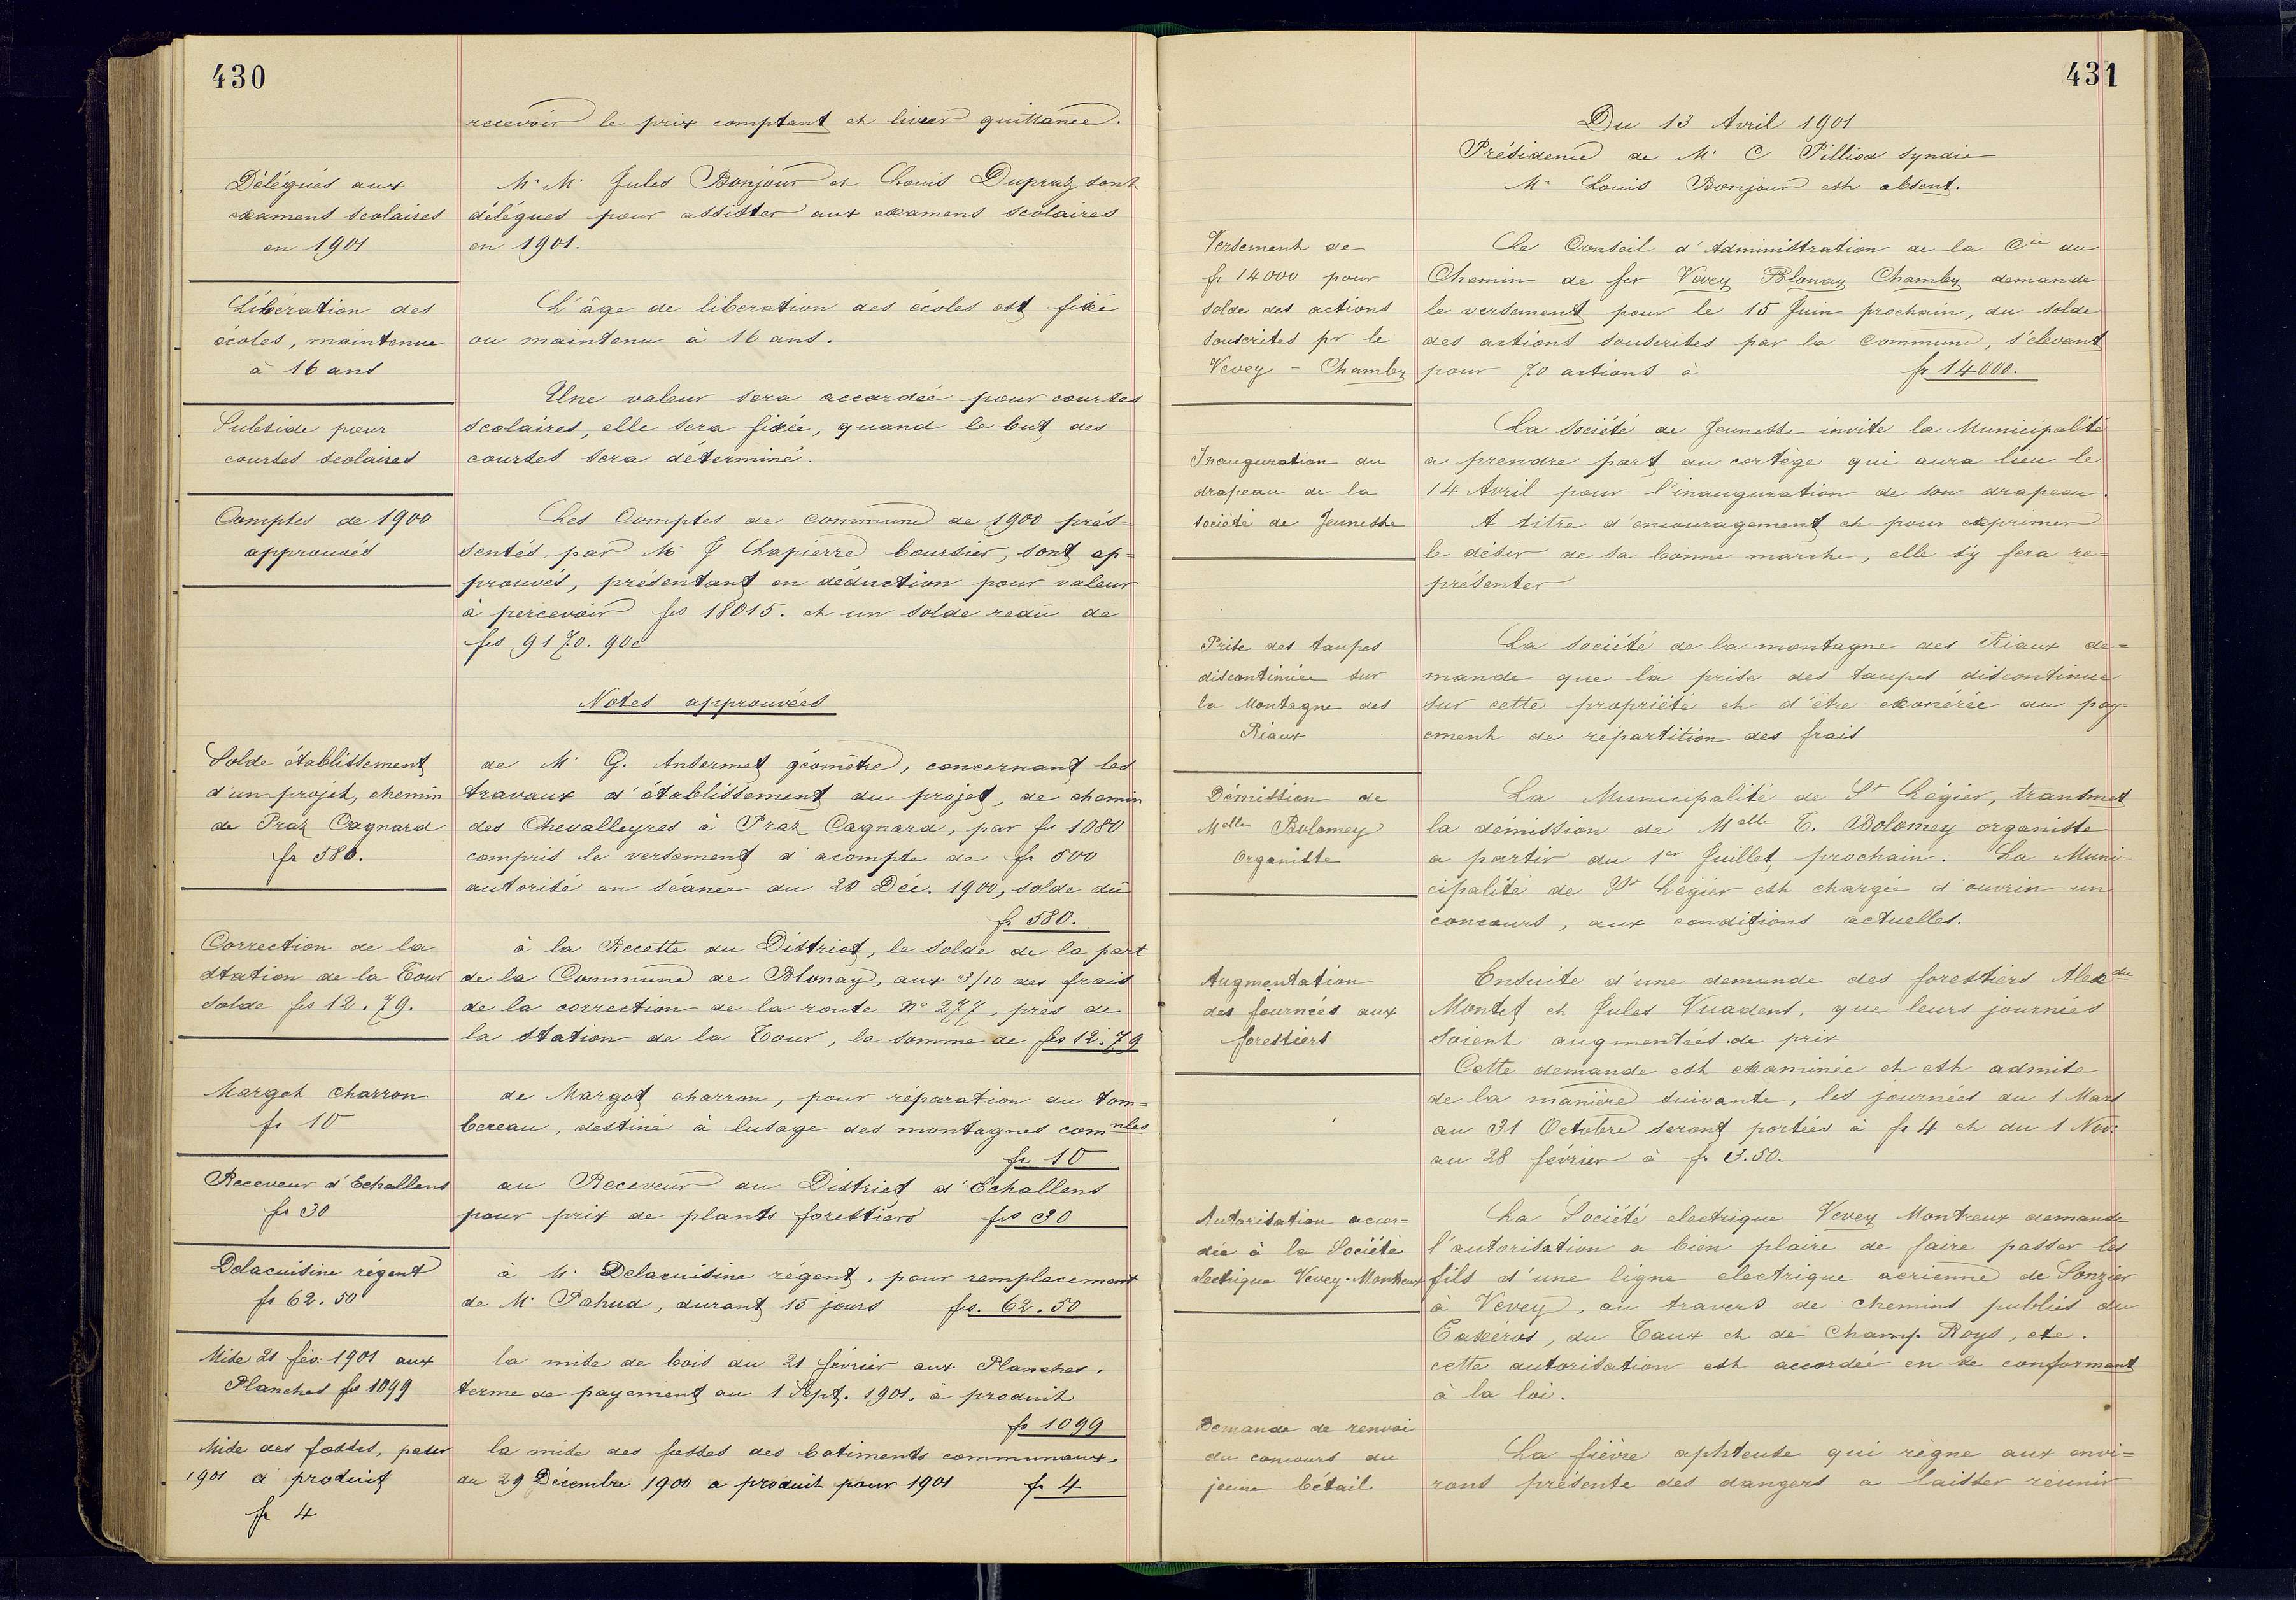 430
recevoir le prix comptant et livrer quittance.
Délégués aux
examens scolaires
en 1901
M. M. Jules Bonjour et Louis Dupraz sont
délégues pour assister aux examens scolaires
en 1901.
Libération des
écoles, maintenue
à 16 ans
L'âge de liberation des écoles est fixé
ou maintenu à 16 ans.
Subside pour
courses scolaires
Une valeur sera accordée pour courses
scolaires, elle sera fixée, quand le but des
courses sera déterminé.
Comptes de 1900
approuvés
Les Comptes de commune de 1900 prés-
sentés, par M. J Chapierre boursier, sont ap=
prouvés, présentant en déduction pour valeur
à percevoir frs 18015. et un solde redû de
frs 9170. 90c
Notes approuvées
Solde établissement
d'un projet, chemin
de Praz Cagnard
fr 580.
de M. G. Ansermet géomètre, concernant les
travaux d'établissement du projet, de chemin
des Chevalleyres à Praz Cagnard, par frs 1080
compris le versement d'acompte de fr 500
autorisé en séance du 20 Déc. 1900, solde dû
fr 580.
Correction de la
station de la Tour
solde frs 12.79.
à la Recette du District, le solde de la part
de la Commune de Blonay, aux 3/10 des frais
de la correction de la route No 277, près de
la station de la Tour, la somme de frs 12.79
Margot charron
fr 10
de Margot charron, pour réparation du tom=
bereau, destiné à lusage des montagnes comnles
fr 10
Receveur d'Echallens
frs 30
au Receveur du District d'Echallens
pour prix de plants forestiers frs 30
Delacuisine régent
frs 62.50
à M. Delacuisine régent, pour remplacement
de M. Pahud, durant 15 jours frs. 62.50
Mise 21 fév. 1901 aux
Planches frs 1099
la mise de bois du 21 février aux Planches,
terme de payement au 1 Sept. 1901. à produit
frs 1099
Mise des fosses, pour
1901 a produit
fr 4
la mise des fosses des batiments communaux,
du 29 Décembre 1900 a produit pour 1901 fr 4
431
Du 13 Avril 1901
Présidence de M. C Pilliod syndic
M. Louis Bonjour est absent.
Versement de
fr 14000 pour
solde des actions
souscrites pr le
Vevey - Chamby
Le Conseil d'Administration de la Cie du
Chemin de fer Vevey Blonay Chamby demande
le versement pour le 15 Juin prochain, du solde
des actions souscrites par la commune, s'élevant
pour 70 actions à fr 14000.
Inauguration du
drapeau de la
société de Jeunesse
La Société de Jeunesse invite la Municipalité
a prendre part au cortège qui aura lieu le
14 Avril pour l'inauguration de son drapeau.
A titre d'encouragement et pour exprimer
le désir de sa bonne marche, elle s'y fera re=
présenter
Prise des taupes
discontinuée sur
la Montagne des
Riaux
La société de la montagne des Riaux de=
mande que la prise des taupes discontinue
sur cette propriété et d'être exonérée du pay=
ement de répartition des frais
Démission de
Melle Bolomey
Organiste
La Municipalité de St Légier, transmet
la démission de Melle E. Bolomey organiste
a partir du 1er Juillet prochain. La Muni=
cipalité de St Légier est chargée d'ouvrir un
concours, aux conditions actuelles.
Augmentation
des journées aux
forestiers
Ensuite d'une demande des forestiers Alexdre
Montet et Jules Vuadens, que leurs journées
soient augmentées de prix
Cette demande est examinée et est admise
de la manière suivante, les journées du 1 Mars
au 31 Octobre seront portées à fr 4 et du 1 Nov.
au 28 février à fr 3.50.
Autorisation accor=
dée à la Société
electrique Vevey-Montreux
La Société electrique Vevey Montreux demande
l'autorisation a bien plaire de faire passer les
fils d'une ligne electrique aerienne de Sonzier
à Vevey, au travers de chemins publics du
du Taux et de Champ Roys, etc.
cette autorisation est accordée en se conformant
à la loi.
Demande de renvoi
du concours du
jeune bétail
La fièvre aphteuse qui règne aux envi=
rons présente des dangers a laisser réunir